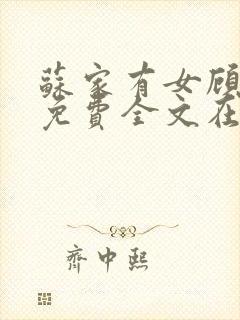 蘇家有女顧
免費全文在
齊中熙